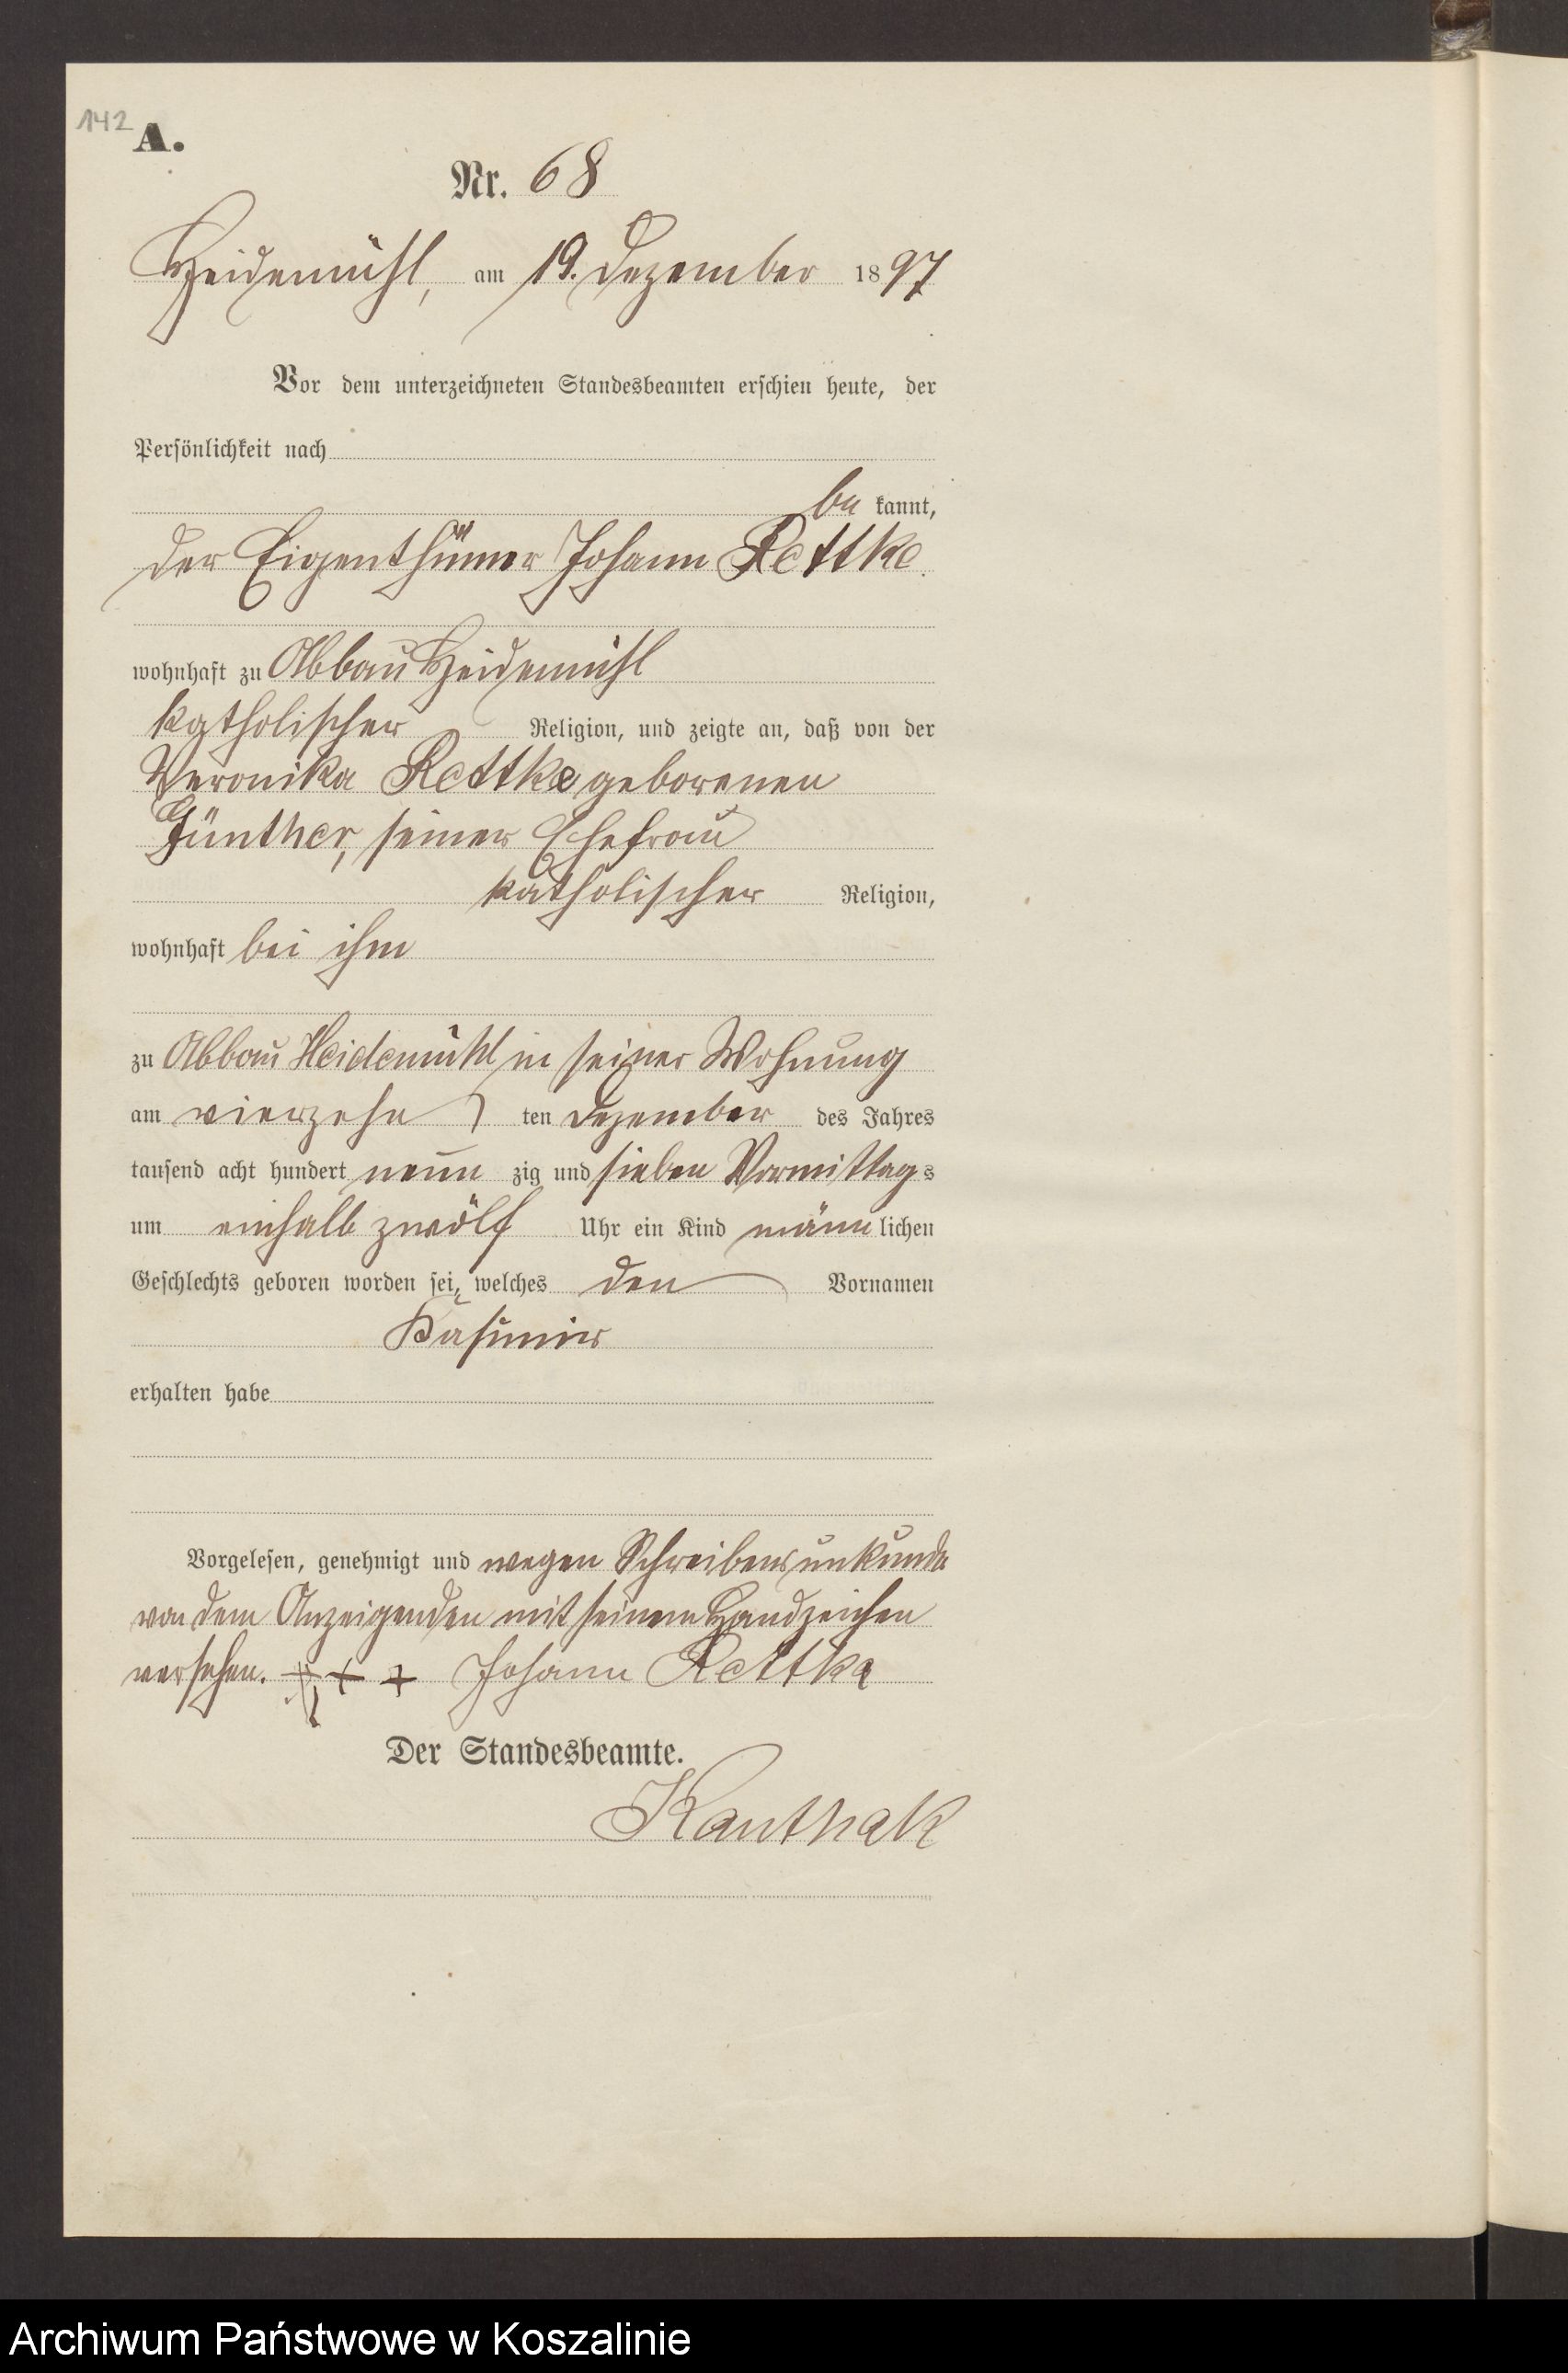 142
A.
Nr. 68
Heidemühl, am 19. Dezember 1897
Vor dem unterzeichneten Standesbeamten erschien heute, der
Persönlichkeit nach
be kannt,
der Eigenthümer Johann Rettke
wohnhaft zu Abbau Heidemühl
katholischer Religion, und zeigte an, daß von der
Veronika Rettke geborenen
Günther, seiner Ehefrau
katholischer Religion,
wohnhaft bei ihm
zu Abbau Heidemühl in seiner Wohnung
am vierzehn ten Dezember des Jahres
tausend acht hundert neun zig und sieben Vormittags
um einhalb zwölf Uhr ein Kind männ lichen
Geschlechts geboren worden sei, welches den Vornamen
Kasimir
erhalten habe
Vorgelesen, genehmigt und wegen Schreibensunkunde
von dem Anzeigenden mit seinem Handzeichen
versehen. + + + Johann Rettke
Der Standesbeamte.
Kanthak
Archiwum Państwowe w Koszalinie